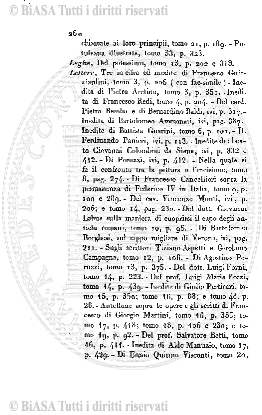 © BIASA TUTTI I DIRITTI RISERVATI
260
chiarate ai loro principii, tomo 21, p. 189. - Po-
Leghe, Del potassium, tomo 13, p. 202 e 318.
Lettere, Tre inedite ed inedite di Francesco Guic-
ciardini, tomo 3, p. 206 (con fac-simile) - Ine-
dita di Pietro Aretino, tomo 3, p. 351. - Inedi-
ta di Francesco Redi, tomo 4, p. - Del card.
Pietro Bembo e di Bernardino Baldi, ivi, p. 317. -
Inedita di Bartolomeo Ammanati, ivi, pag. 389. -
Inedite di Battista Guarini, tomo 6, p. - Il
Ferdinando Panieri, ivi, p. 113. - Inedite del bea-
to Giovanni Colombini da Siena, ivi, p. 332 -
412. - Di Peruzzi, ivi, p. 412. - Nella quale si
fa il confronto tra la pittura e l'incisione, tomo
8, pag. 274. - Di Francesco Cancellieri sopra la
permanenza di Federico IV in Italia, tomo 9, p.
100 e 289. - Del cav. Vincenzo Monti, ivi, p.
206; e tomo 14, pag. - Del dott. Giovanni
Labus sulla maniera di cuoprirsi il capo degli an-
tichi romani, tomo 10, p. 95. - Di Bartolomeo
Borghesi, sul ceppo migliare di Verona, ivi, pag.
211. - Sugli scrittori Tiziano Aspetti e Girolamo
Campagna, tomo 12, p. 108. - Di Agostino Pe-
ruzzi, tomo 13, p. 375. - Del dott. Luigi Porni,
tomo 14, p. 221. - Del prof. Luigi Maria Rezzi,
tomo 14, p. - Inedita di Giulio Perticari, to-
mo 15, p. 350; tomo 16, p. 88; e tomo 40, p.
28. - Autellane sopra le opere e gli scritti di Fran-
cesco di Giorgio Martini, tomo 16, p. 355; to-
mo 17, p. 418; tomo 18, p. 106 e 230; e to-
mo 19, p. 92. - Del prof. Salvatore Betti, tomo
16, p. 411. - Inedita di Aldo Manuzio, tomo 17,
p. 429. - Di Ennio Quirino Visconti, tomo 20,
© BIASA TUTTI I DIRITTI RISERVATI